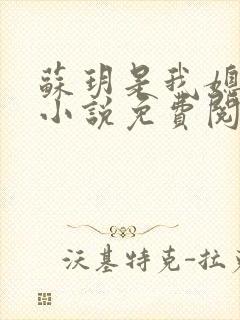 蘇玥是我媳
小說免費閱
沃基特克-拉克